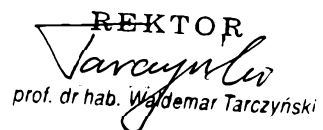 REKTOR
Tarczyński
prof. dr hab. Waldemar Tarczyński